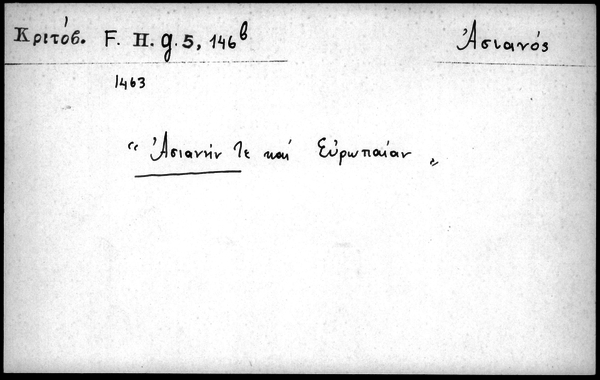 Κριτόβ. F. H. g. 5, 146b Ἀσιανός
1463
“ Ἀσιανήν τε καί Εὐρωπαίαν „